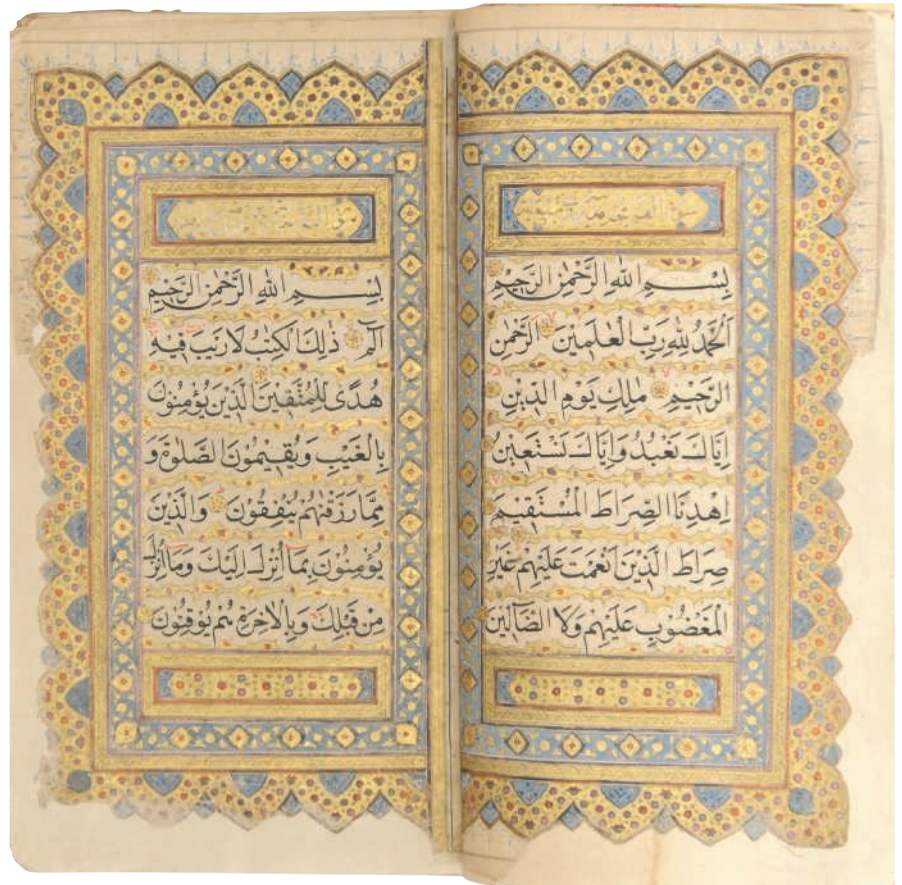 بِسْمِ اللهِ الرَّحْمٰنِ الرَّحِيْمِ
اَلْحَمْدُ لِلّٰهِ رَبِّ الْعٰلَمِيْنَ الرَّحْمٰنِ
الرَّحِيْمِ مٰلِكِ يَوْمِ الدِّيْنِ
اِيَّاكَ نَعْبُدُ وَاِيَّاكَ نَسْتَعِيْنُ
اِهْدِنَا الصِّرَاطَ الْمُسْتَقِيْمَ
صِرَاطَ الَّذِيْنَ اَنْعَمْتَ عَلَيْهِمْ غَيْرِ
الْمَغْضُوْبِ عَلَيْهِمْ وَلَا الضَّآلِّيْنَ
بِسْمِ اللهِ الرَّحْمٰنِ الرَّحِيْمِ
الٓمّٓ ذٰلِكَ الْكِتٰبُ لَا رَيْبَ فِيْهِ
هُدًى لِّلْمُتَّقِيْنَ الَّذِيْنَ يُؤْمِنُوْنَ
بِالْغَيْبِ وَيُقِيْمُوْنَ الصَّلٰوةَ وَ
مِمَّا رَزَقْنٰهُمْ يُنْفِقُوْنَ وَالَّذِيْنَ
يُؤْمِنُوْنَ بِمَآ اُنْزِلَ اِلَيْكَ وَمَآ اُنْزِلَ
مِنْ قَبْلِكَ وَبِالْاٰخِرَةِ هُمْ يُوْقِنُوْنَ